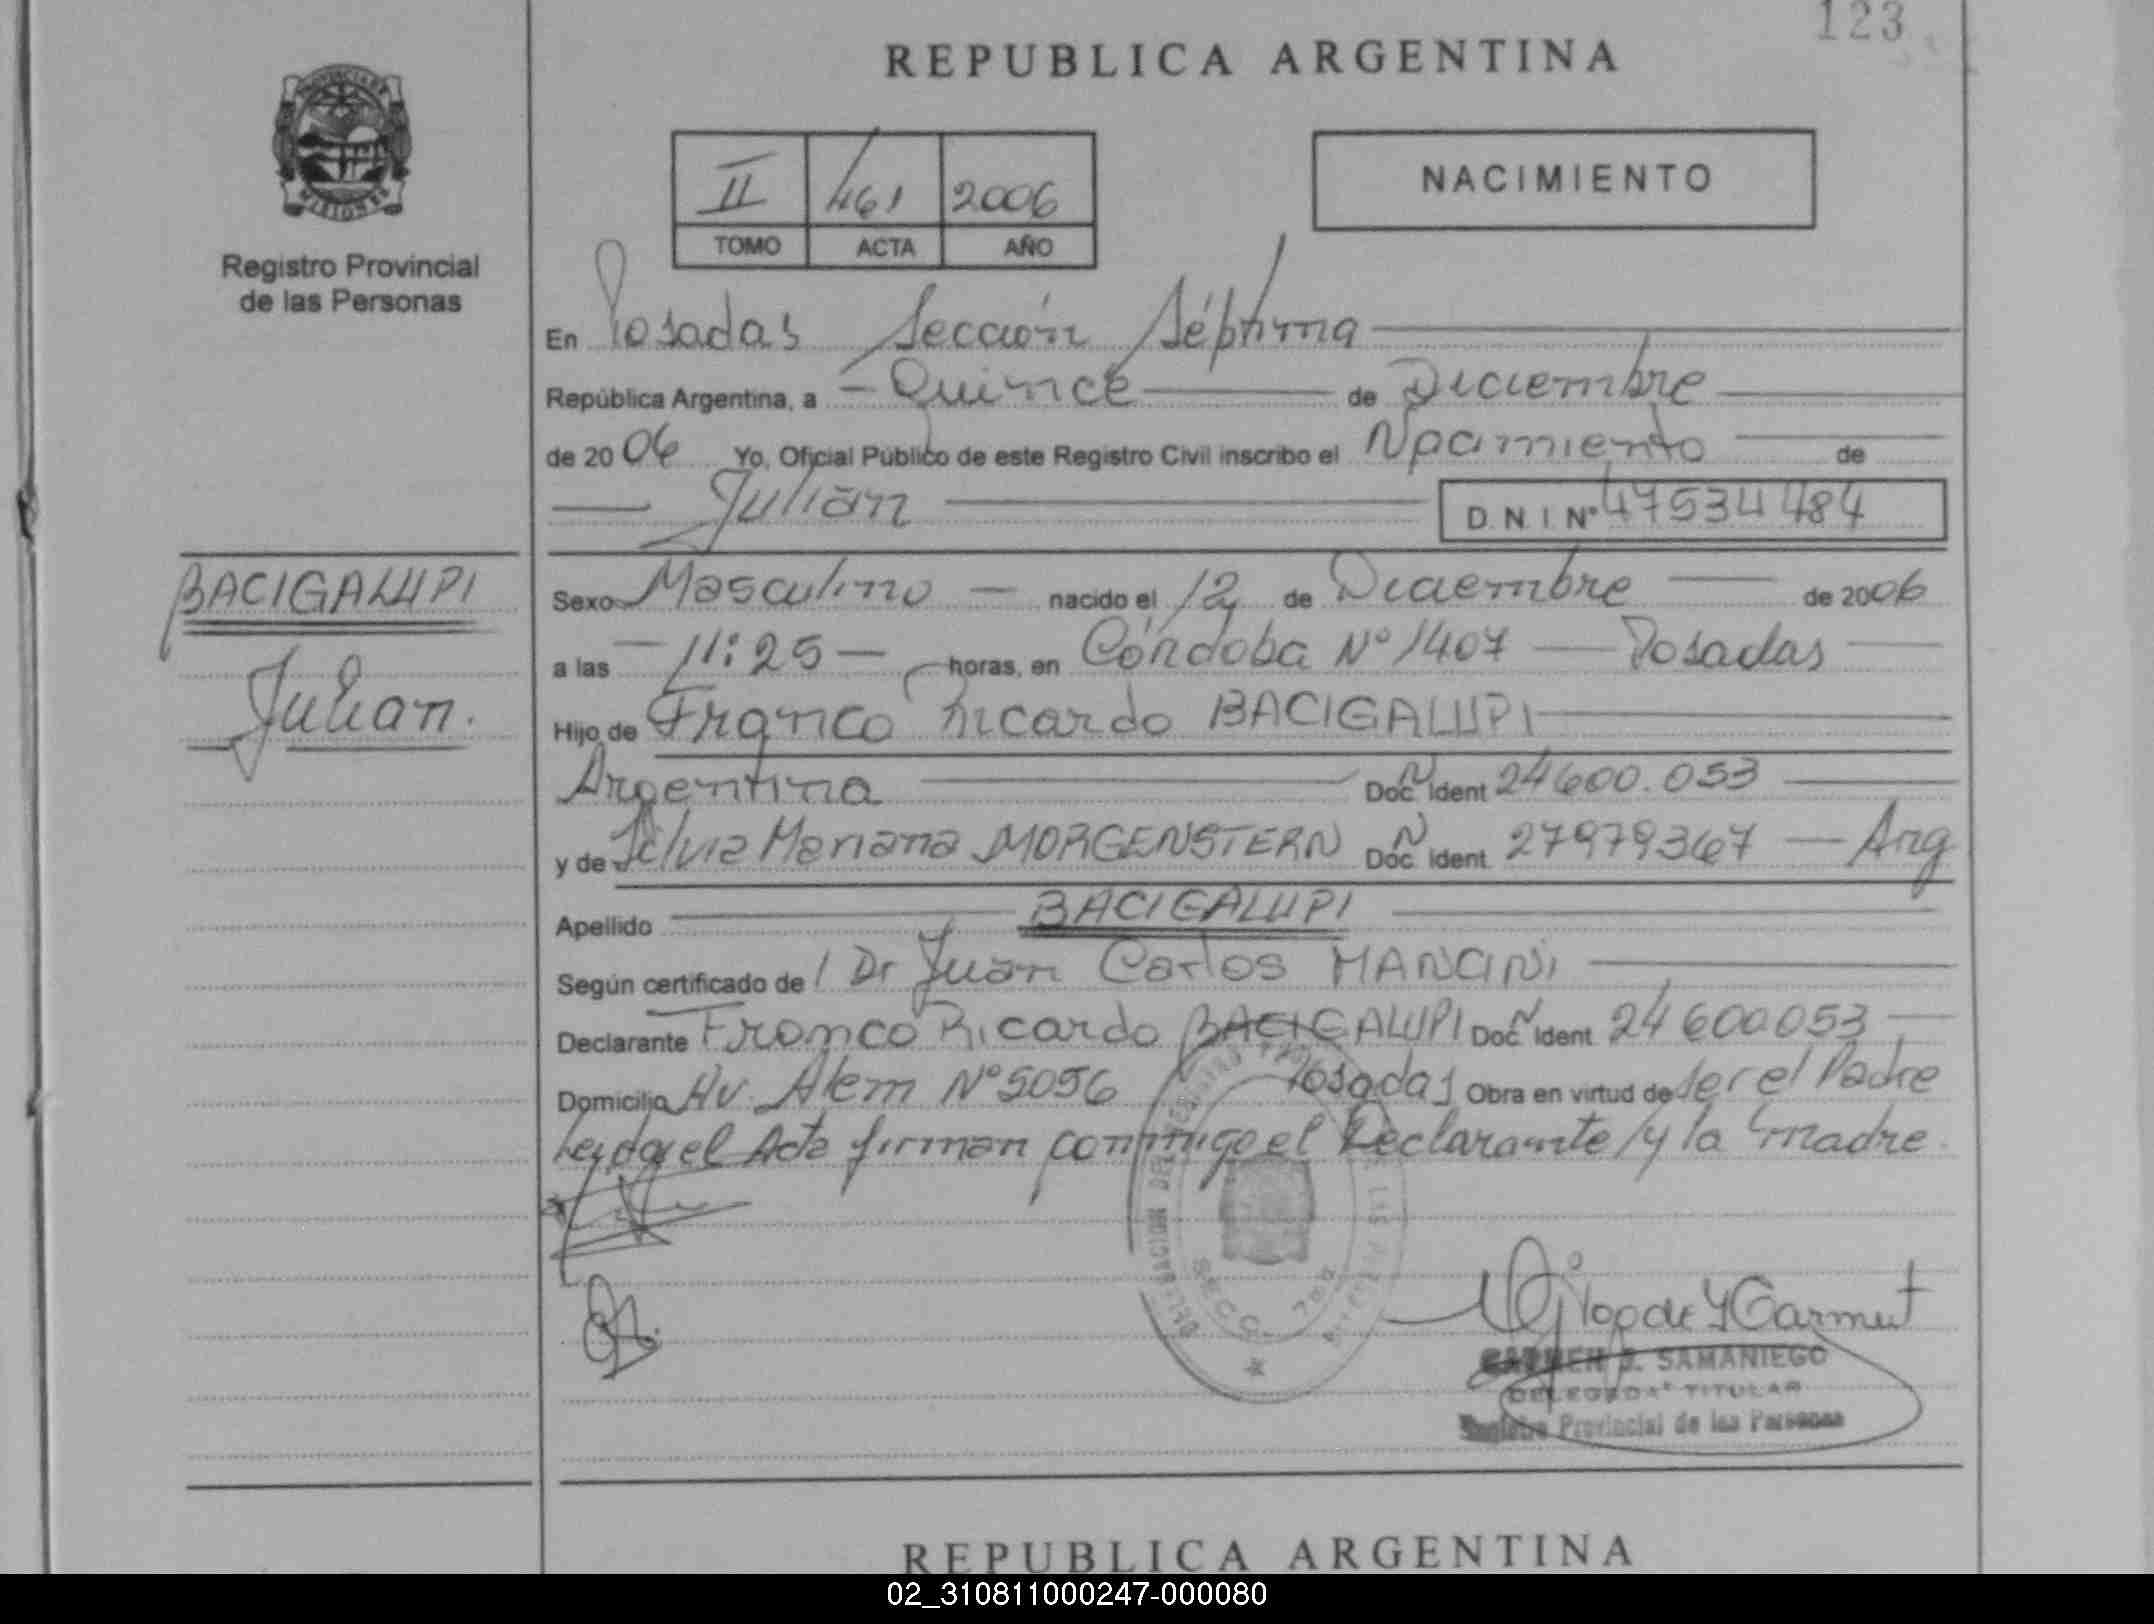 123
REPUBLICA ARGENTINA
PROVINCIA DE
MISIONES
Registro Provincial
de las Personas
II 461 2006
TOMO ACTA AÑO
NACIMIENTO
En Posadas Sección Séptima
República Argentina, a Quince de Diciembre
de 2006 Yo, Oficial Público de este Registro Civil inscribo el Nacimiento de
Julián D.N.I Nº 47534484
BACIGALUPI
Julian.
Sexo Masculino nacido el 12 de Diciembre de 2006
a las 11:25 horas, en Córdoba Nº 1407 Posadas
Hijo de Franco Ricardo BACIGALUPI
Argentina Doc. Ident 24600.053
y de Silvia Mariana MORGENSTERN Doc. Ident. 27979367 Arg
Apellido BACIGALUPI
Según certificado de Dr Juan Carlos MANCINI
Declarante Franco Ricardo BACIGALUPI Doc. Ident 24600053
Domicilio Av. Alem Nº 5056 Posadas Obra en virtud de ser el Padre
Leyda el Acta firman conmigo el Declarante y la madre.
SECC. 7ma
CARMEN S. SAMANIEGO
DELEGADA TITULAR
Registro Provincial de las Personas
REPUBLICA ARGENTINA
02_310811000247-000080